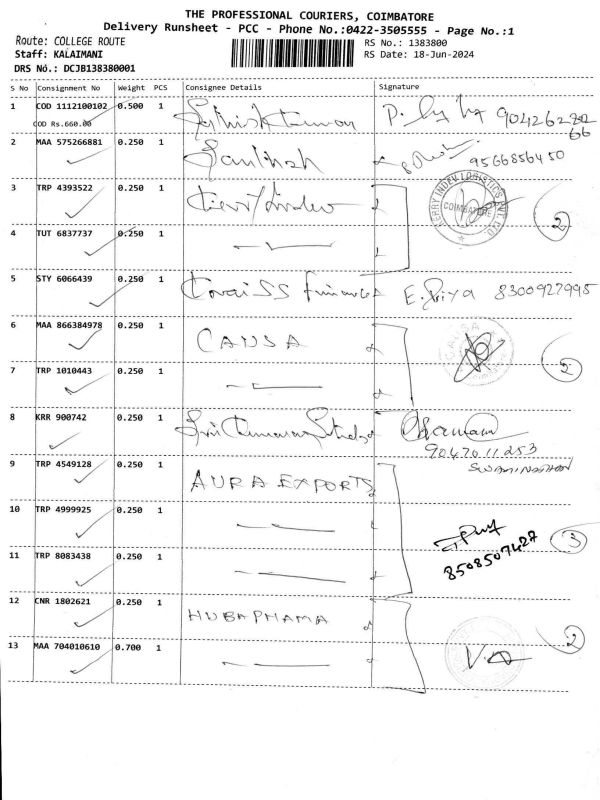 THE PROFESSIONAL COURIERS, COIMBATORE
Delivery Runsheet - PCC - Phone No.:0422-3505555 - Page No.:1
Route: COLLEGE ROUTE
RS No.: 1383800
Staff: KALAIMANI
RS Date: 18-Jun-2024
DRS No.: DCJB138380001
S No Consignment No Weight PCS Consignee Details Signature
1 COD 1112100102 0.500 1 90426280
COD Rs.660.00 66
2 MAA 575266881 0.250 1 Santhosh 9566856450
3 TRP 4393522 0.250 1
KERRY INDEV LOGISTICS PVT. LTD.
COIMBATORE
2
4 TUT 6837737 0.250 1
5 STY 6066439 0.250 1 Covai SS Finance E. Priya 8300927995
6 MAA 866384978 0.250 1 CAUSA
2
7 TRP 1010443 0.250 1
8 KRR 900742 0.250 1
90470 11253
SWAMINATHAN
9 TRP 4549128 0.250 1 AURA EXPORTS
10 TRP 4999925 0.250 1
3
8508507427
11 TRP 8083438 0.250 1
12 CNR 1802621 0.250 1 HUBAPHAMA
2
13 MAA 704010610 0.700 1